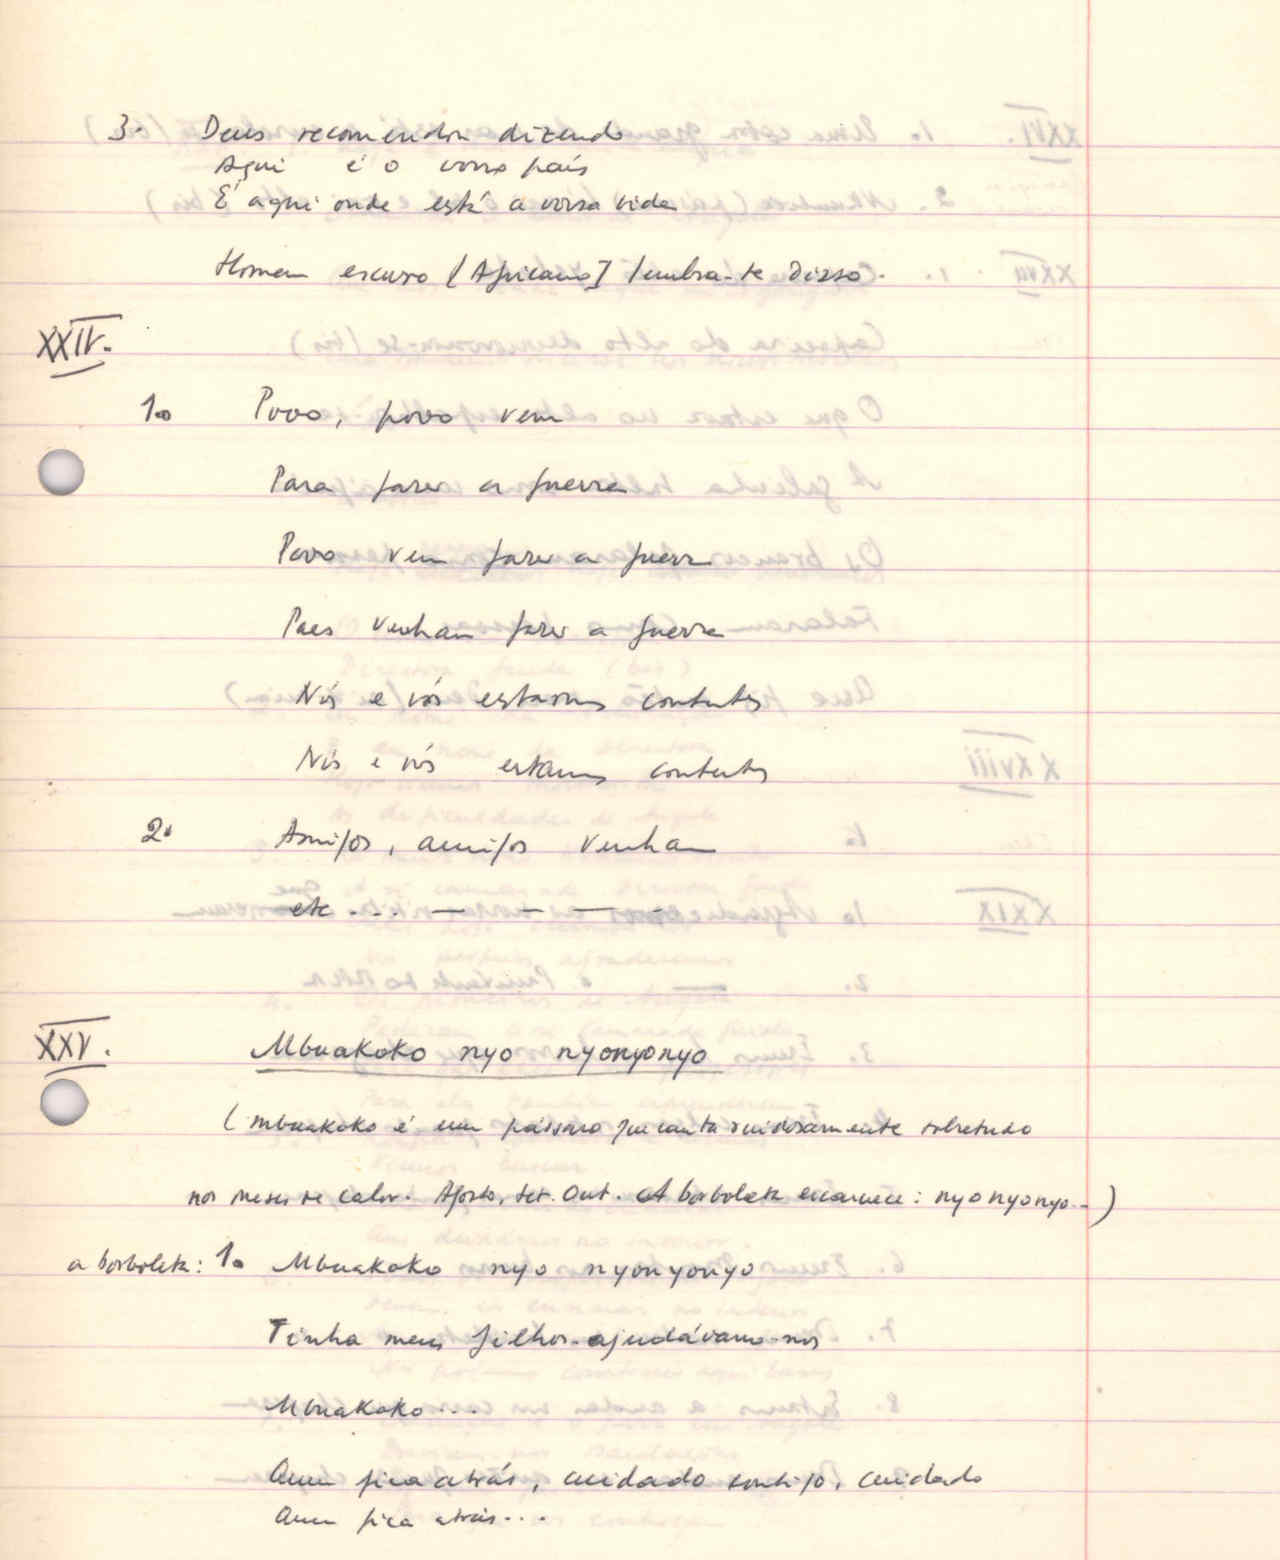 3. Deus recomendou dizendo
Aqui é o vosso país
É aqui onde está a vossa vida
Homem escuro [Africano] lembra-te disso.
XXIV.
1. Povo, povo vem
Para fazer a guerra
Povo vem fazer a guerra
Paes venham fazer a guerra
Nós e vós estamos contentes
Nós e vós estamos contentes
2. Amigos, amigos venham
etc ... — — — —
XXV. Mbuakoko nyo nyonyonyo
(mbuakoko é um pássaro que canta ruidosamente sobretudo
nos meses de calor. Agosto, Set. Out. A borboleta escarnece: nyonyonyo..)
a borboleta: 1. Mbuakoko nyo nyonyonyo
Tinha meus filhos-ajudávamo-nos
Mbuakoko ...
Quem fica atrás, cuidado contigo, cuidado
Quem fica atrás...